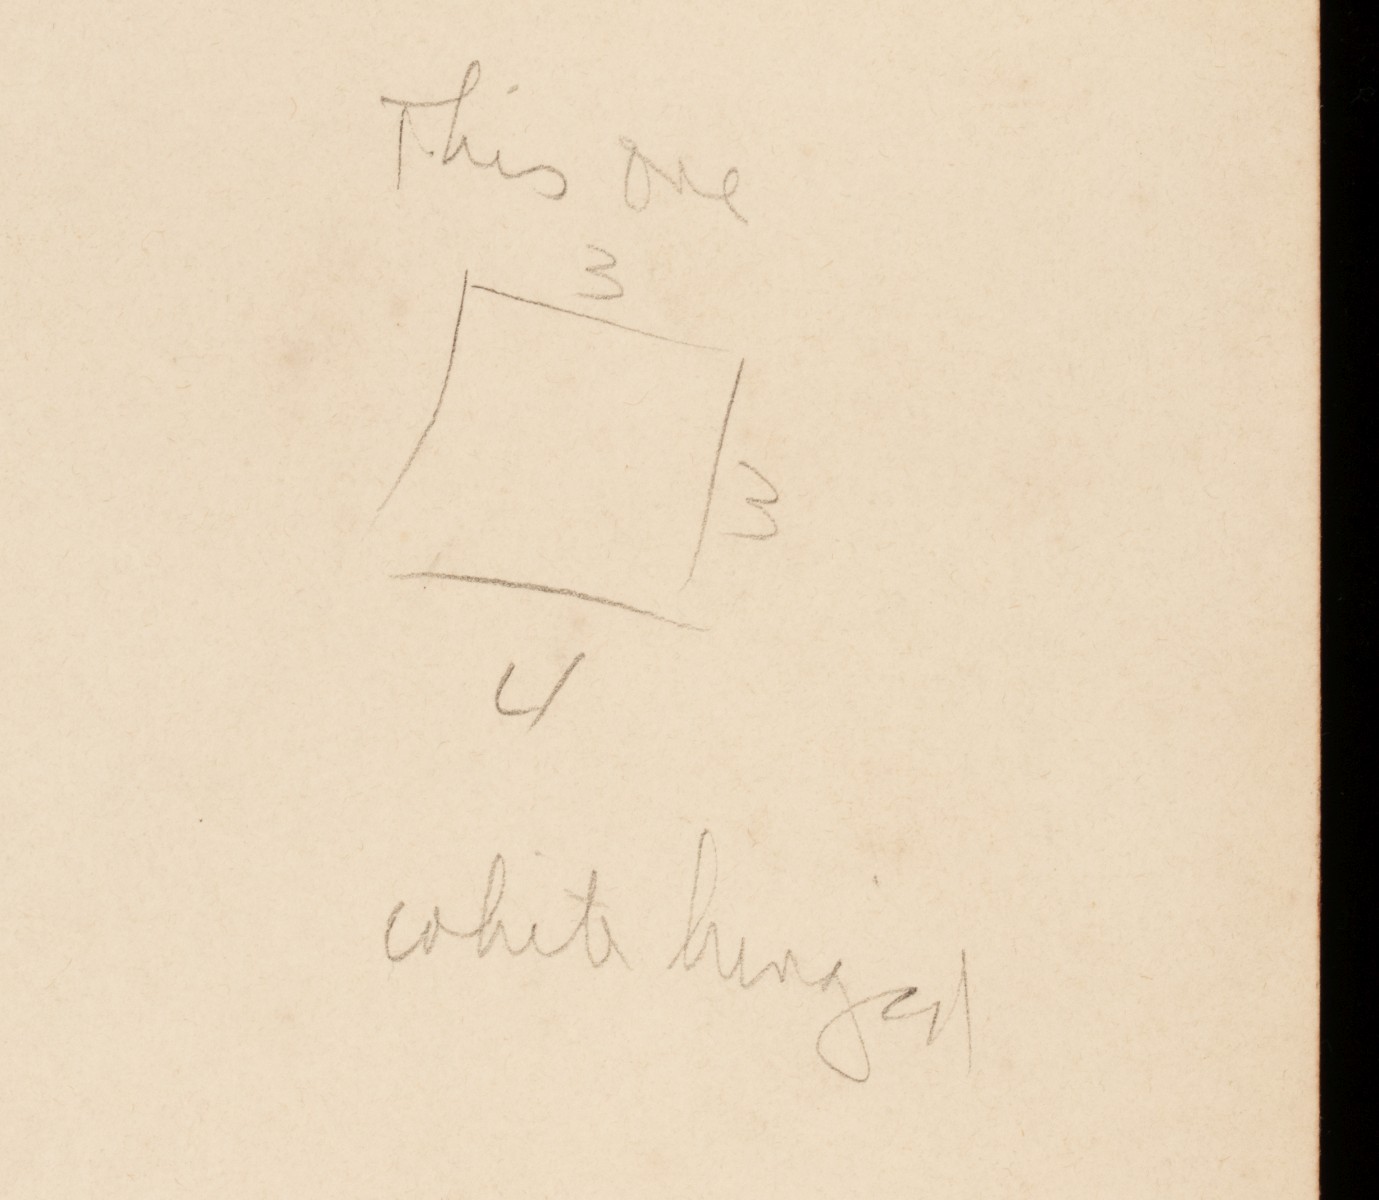 This one
3
3
4
white hinged